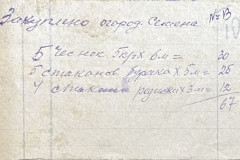 Закуплено огород. Семена №13
5 Чеснок 5кр х 6м = 30
5 стаканов буряка х 5м = 25
4 стакана редиски 3м = 12
67